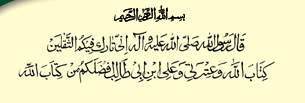 بسم الله الرحمن الرحيم
قال رسول الله صلى الله عليه وآله إني تارك فيكم الثقلين
كتاب الله وعترتي وعلي ابن ابي طالب افضلكم من كتاب الله